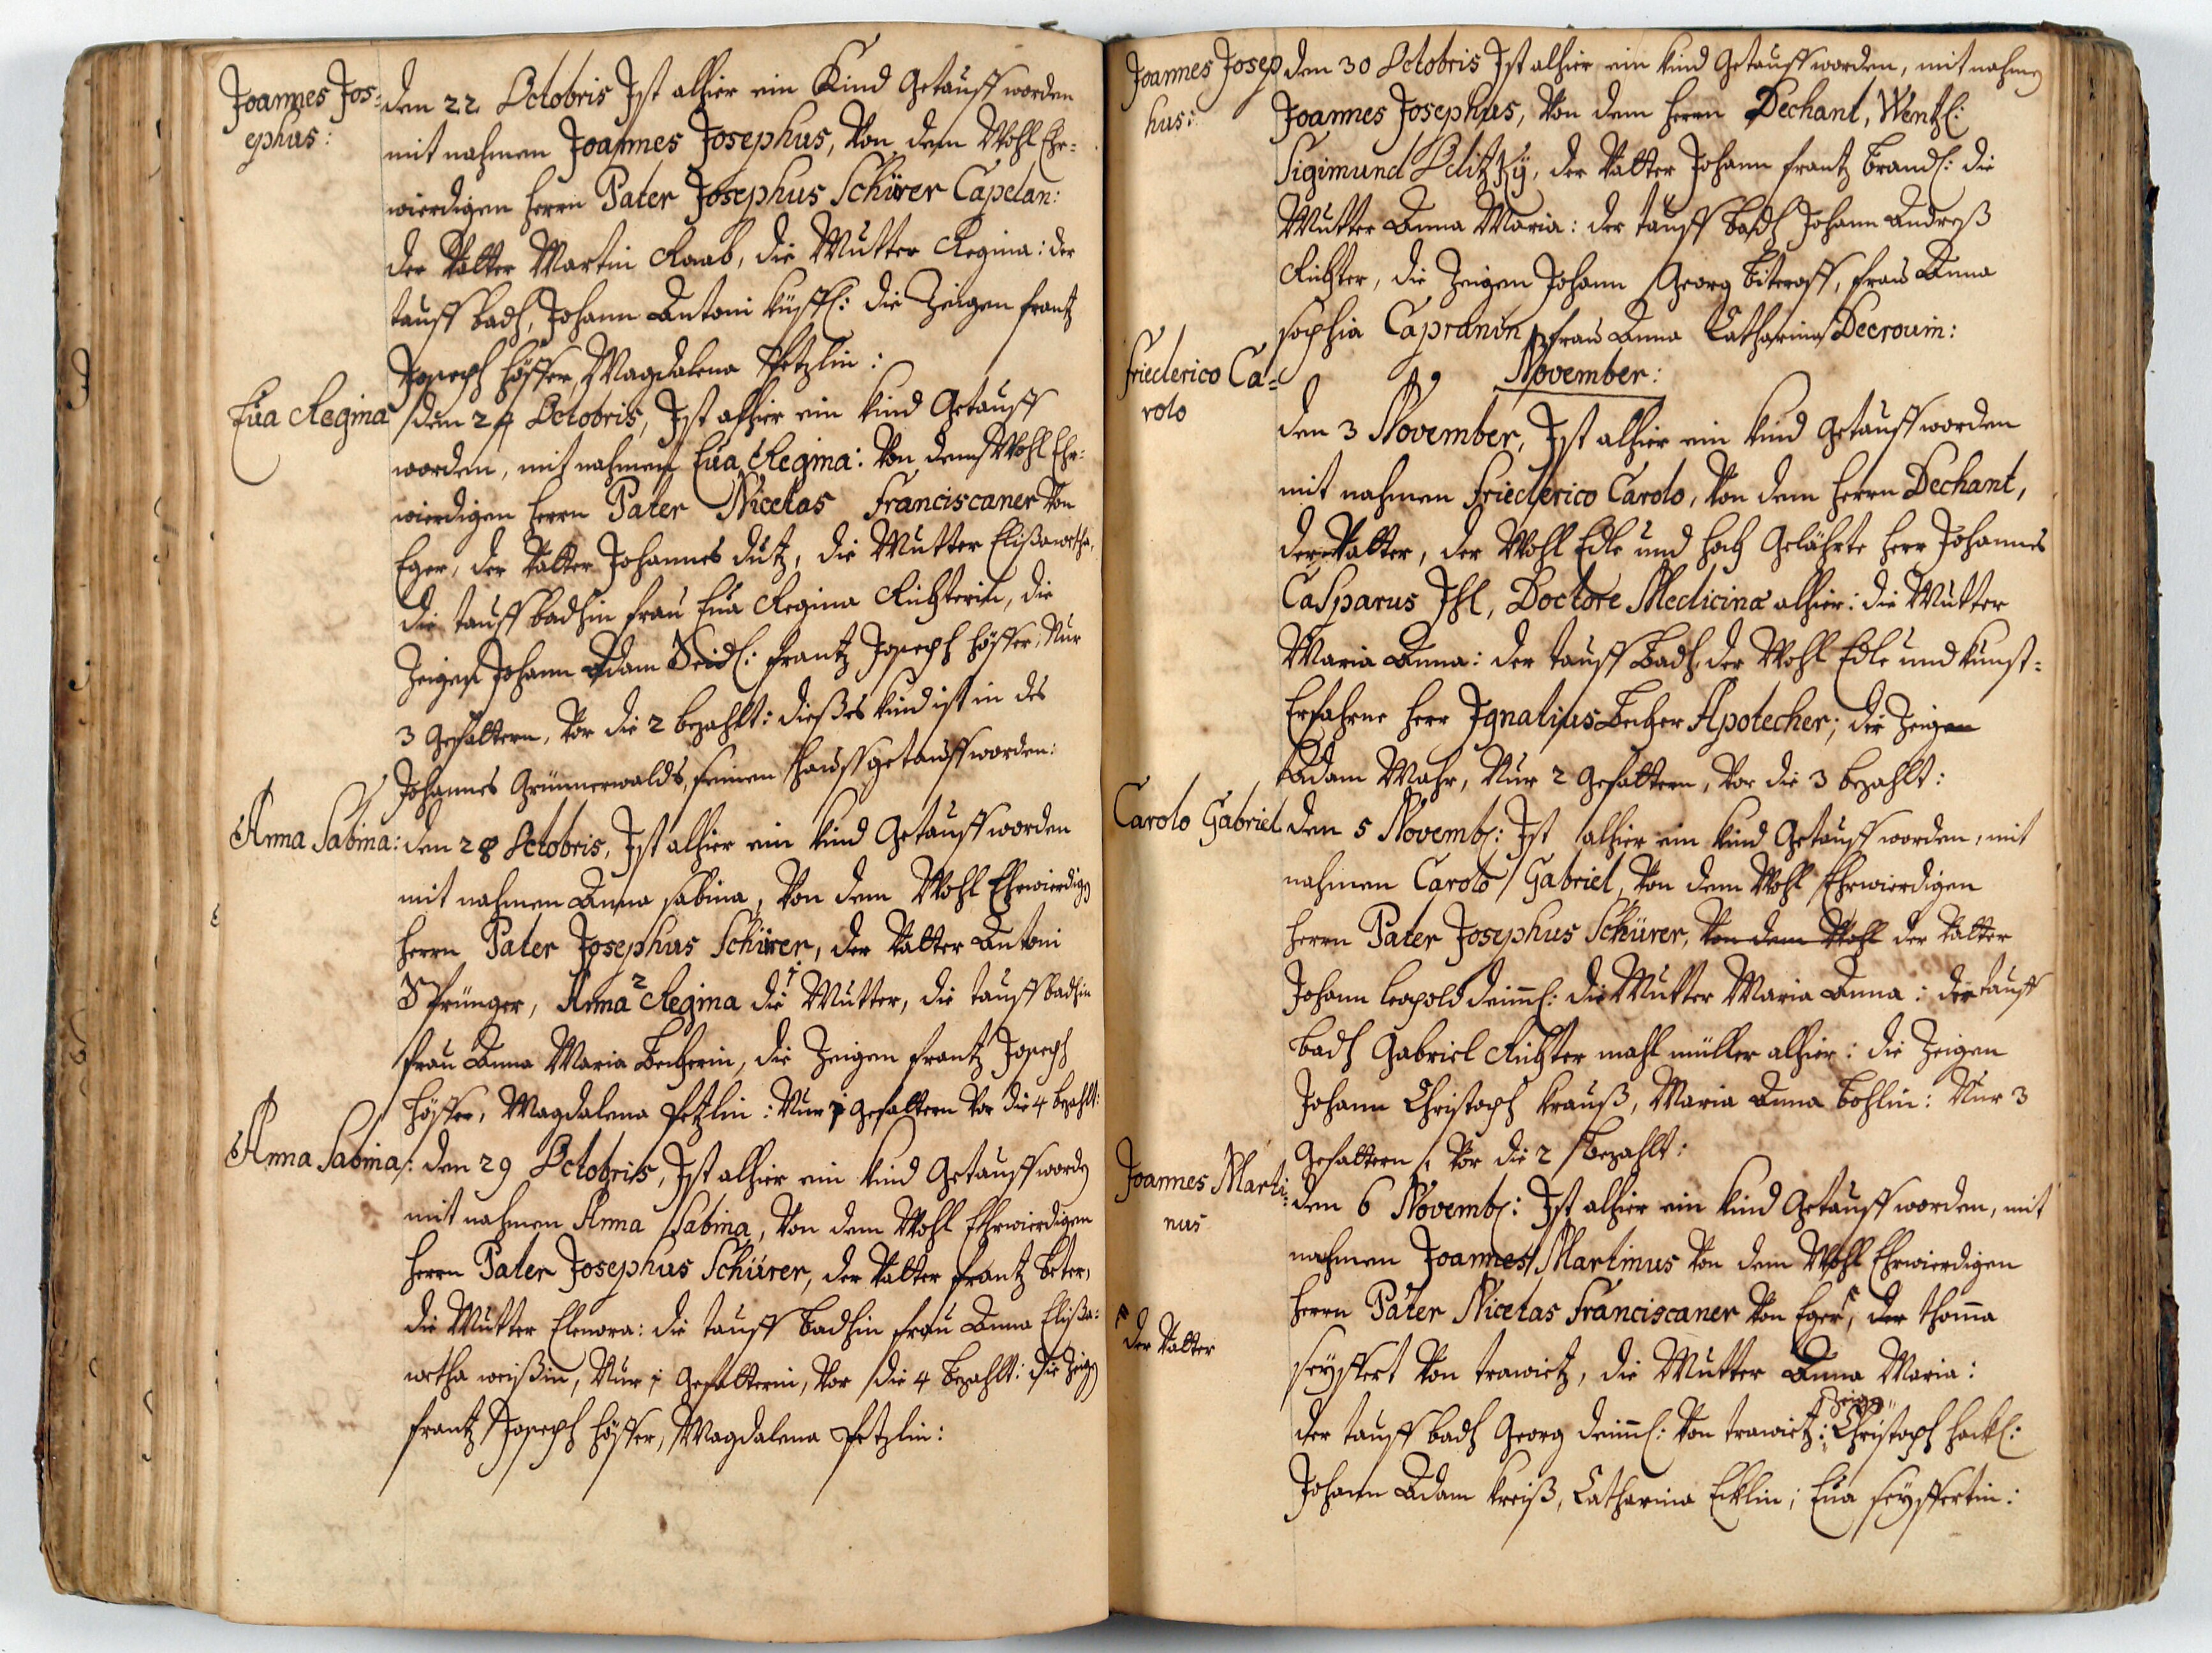 Joannes Jos=
ephus:
den 22 Octobris Ist alhier ein Kind Getaufft worden
mit nahmen Joannes Josephus, Von dem Wohl Ehr=
wierdigen Herrn Pater Josephus Schürer Capelan:
der Vatter Martin Raab, die Mutter Regina: der
tauff badh, Johann Antoni die Zeigen Frantz
Joseph Höffer, Magdalena Petzlin:
Eua Regina
den 24 Octobris, Ist alhier ein Kind Getaufft
worden, mit nahmen Eua Regina: Von dem Wohl Ehr=
wierdigen Herrn Pater Nicetas Franciscaner Von
Eger, der Vatter Johannes Dutz, die Mutter Elißawetha,
die tauff badhin Frau Eua Regina Richterin, die
Zeigen Johann Adam Seidl: Frantz Joseph Höffer, Nur
3 Gefattern, Vor die 2 bezahlt: dießes Kind ist in des
Johannes Grünnerwalds, seinem Hauß getaufft worden:
Anna Sabina:
den 28 Octobris, Ist alhier ein Kind Getaufft worden
mit nahmen Anna Sabina, Von dem Wohl Ehrwierdigen
Herrn Pater Josephus Schürer, der Vatter Antoni
Sprünger, Anna 2 Regina die 1 Mutter, die tauff badhin
Frau Anna Maria Becherin, die Zeigen Frantz Joseph
Höffer, Magdalena Petzlin: Nur 1 Gefattern Vor die 4 bezahlt:
Anna Sabina:
den 29 Octobris, Ist alhier ein Kind Getaufft worden
mit nahmen Anna Sabina, Von dem Wohl Ehrwierdigen
Herrn Pater Josephus Schürer, der Vatter Frantz Peter,
die Mutter Elenora: die tauff badhin Frau Anna Elißa:
wetha weißin, Nur 1 Gefatterin, Vor die 4 bezahlt: die Zeigen
Frantz Joseph Höffer, Magdalena Petzlin:
Joannes Josep
hus:
den 30 Octobris Ist alhier ein Kind Getaufft worden, mit nahmen
Joannes Josephus, Von dem Herrn Dechant, Wentzl:
Sigimund Olitzkÿ, der Vatter Johann Frantz Brandl: die
Mutter Anna Maria: der tauff badh Johann Andreß
Richter, die Zeigen Johann Georg Frau Anna
Sophia Capranin, Frau Anna Catharina Decrouin:
November:
Friederico Ca=
rolo
den 3 November, Ist alhier ein Kind Getaufft worden
mit nahmen Friederico Carolo, Von dem Herrn Dechant,
der Vatter, der Wohl Edle und Hoch Gelährte Herr Johannes
Casparus Ihl, Doctore Medicinæ alhier: die Mutter
Maria Anna: der tauff badh, der Wohl Edle und Kunst=
Erfahrne Herr Ignatius Becher Apotecher; die Zeigen
Adam Mahr, Nur 2 Gefattern, Vor die 3 bezahlt:
Carolo Gabriel
den 5 Novemb: Ist alhier ein Kind Getaufft worden, mit
nahmen Carolo Gabriel, Von dem Wohl Ehrwierdigen
Herrn Pater Josephus Schürer, Von dem Wohl der Vatter
Johann Leopold Deiml: die Mutter Maria Anna: der tauff
badh Gabriel Richter mahl müller alhier: die Zeigen
Johann Christoph Krauß, Maria Anna Bohlin: Nur 3
Gefattern, Vor die 2 bezahlt:
Joannes Marti:
nus
den 6 Novemb: Ist alhier ein Kind Getaufft worden, mit
nahmen Joannes Martinus Von dem Wohl Ehrwierdigen
Herrn Pater Nicetas Franciscaner Von Eger, der Thoma
der Vatter
Seyffert Von trawietz, die Mutter Anna Maria:
Zeigen
der tauff badh Georg Deiml: Von trawietz: Christoph Hackl:
Johann Adam Kreiß, Catharina Ecklin; Eua Seyffertin: